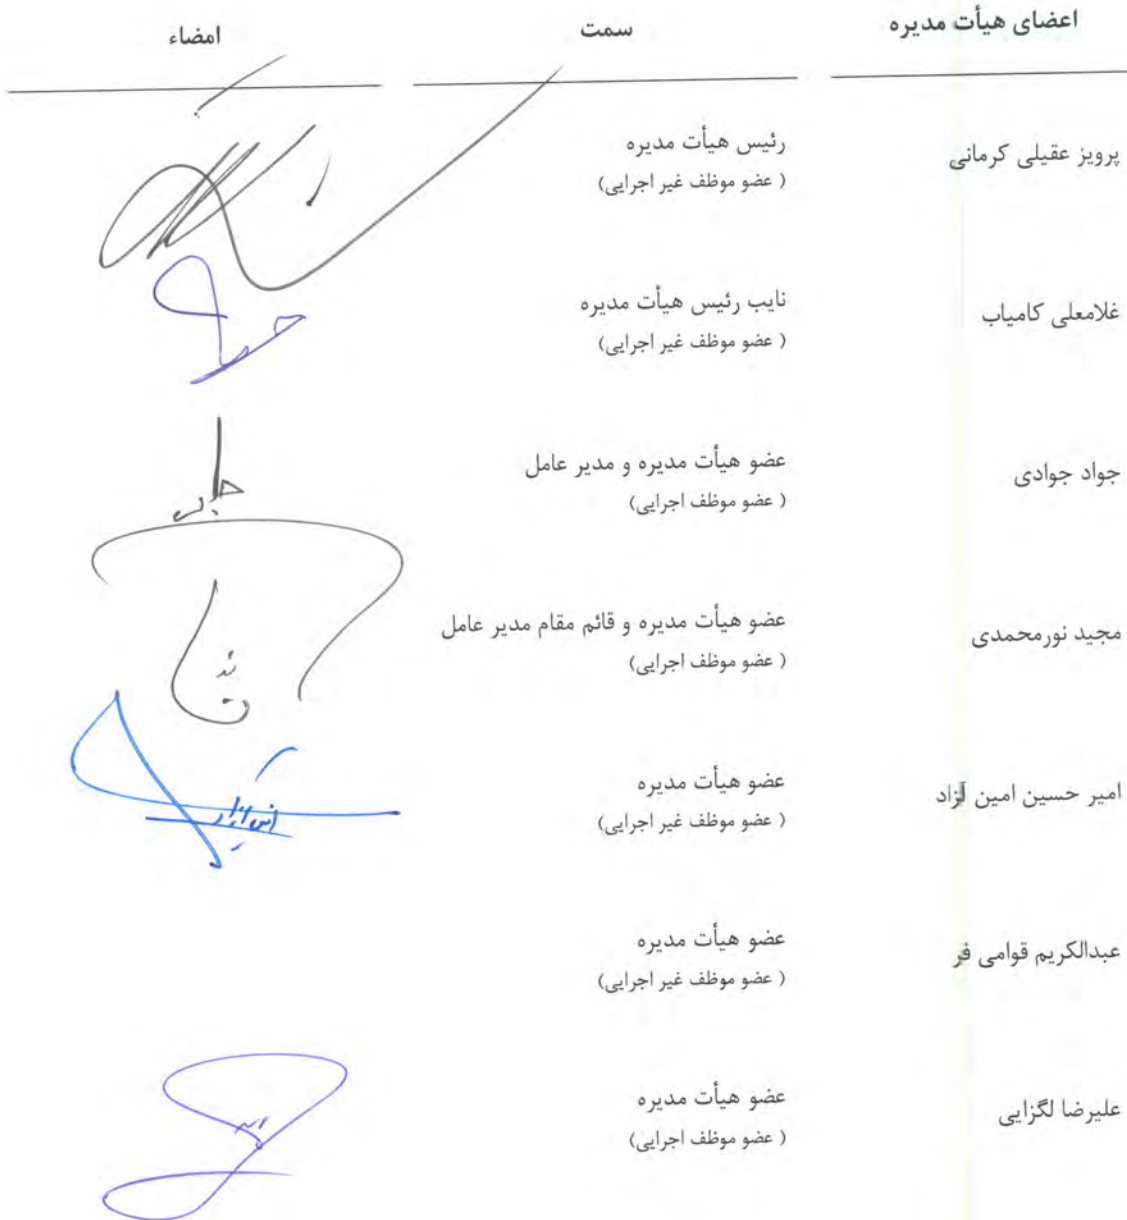 اعضای هیأت مدیره
سمت
امضاء
پرویز عقیلی کرمانی
رئیس هیأت مدیره
( عضو موظف غیر اجرایی)
غلامعلی کامیاب
نایب رئیس هیأت مدیره
( عضو موظف غیر اجرایی)
جواد جوادی
عضو هیأت مدیره و مدیر عامل
( عضو موظف اجرایی)
مجید نورمحمدی
عضو هیأت مدیره و قائم مقام مدیر عامل
( عضو موظف اجرایی)
امیر حسین امین آزاد
عضو هیأت مدیره
( عضو موظف غیر اجرایی)
عبدالکریم قوامی فر
عضو هیأت مدیره
( عضو موظف غیر اجرایی)
علیرضا لگزایی
عضو هیأت مدیره
( عضو موظف اجرایی)